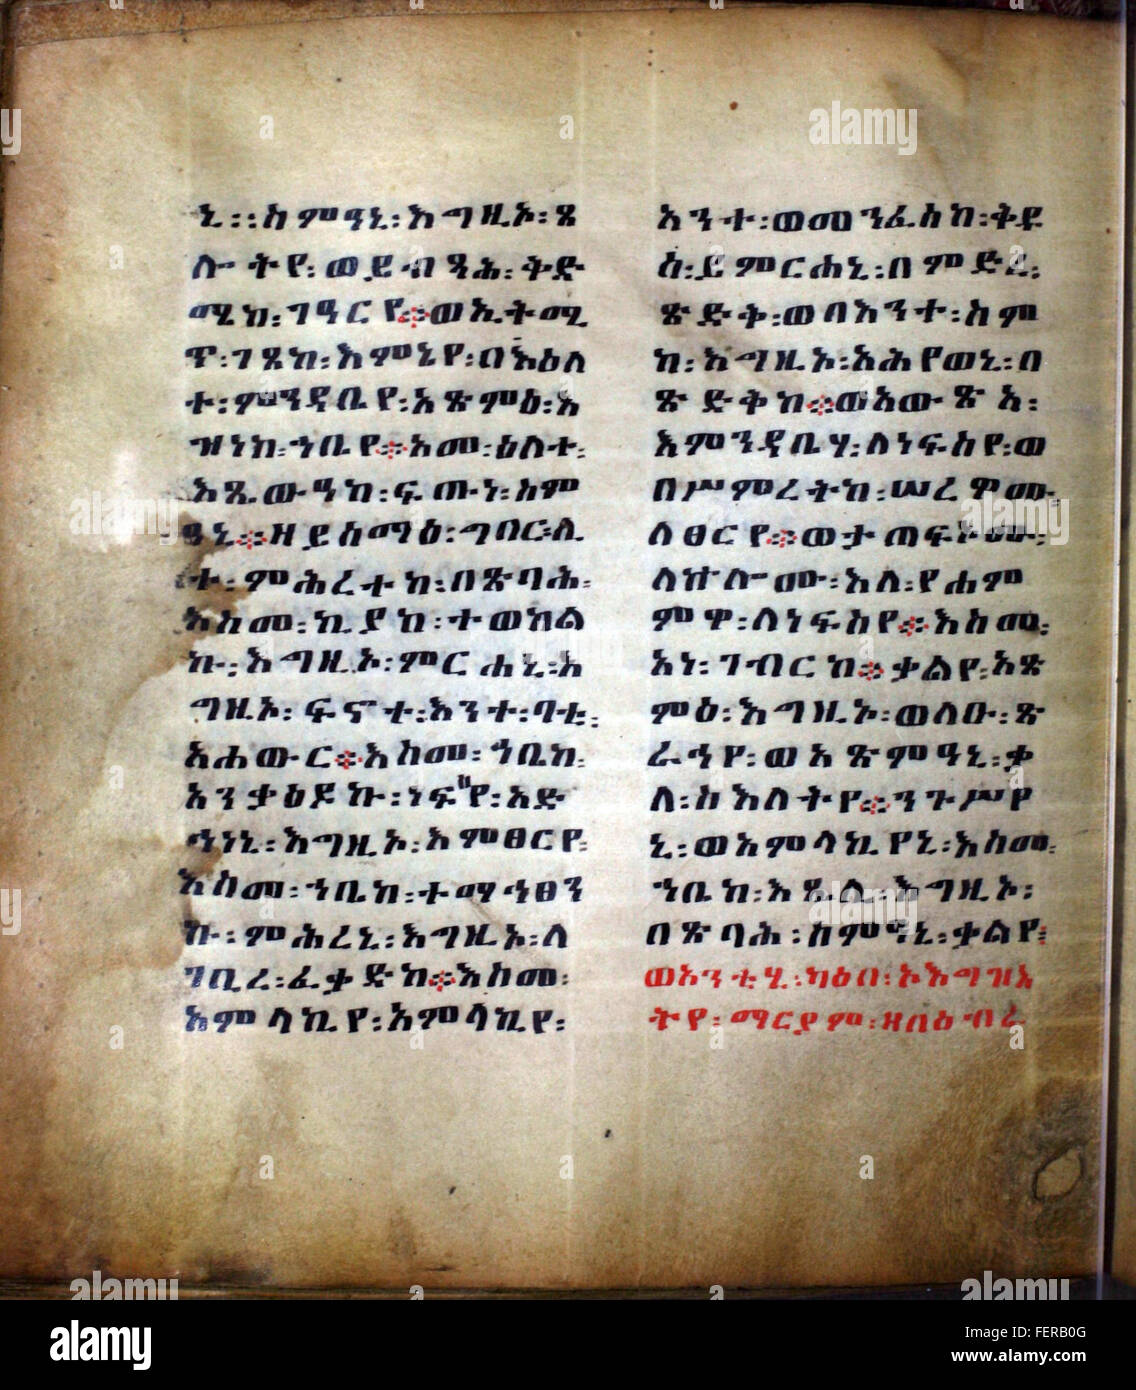 ኒ፡፡ስምዓኒ፡እግዚኦ፡ጸ
ሎትየ፡ወይብጻሕ፡ቅድ
ሜከ፡ገዓርየ፨ወኢትሚ
ጥ፡ገጸከ፡እምኔየ፡በእዕለ
ተ፡ምንዳቤየ፡አጽምዕ፡እ
ዝነከ፡ኀቤየ፨አመ፡ዕለተ፡
እጼውዓከ፡ፍጡነ፡ስም
ዓኒ፨ዘይስማዕ፡ግበር፡ሊ
ተ፡ምሕረተከ፡በጽባሕ፡
እስመ፡ኪያከ፡ተወከል
ኩ፡እግዚኦ፡ምርሐኒ፡እ
ግዚኦ፡ፍኖተ፡እንተ፡ባቲ፡
አሐውር፨እስመ፡ኀቤከ፡
አንቃዕዶኩ፡ነፍስየ፡አድ
ኅነኒ፡እግዚኦ፡እምፀርየ፡
እስመ፡ኀቤከ፡ተማኅፀን
ኩ፡ምሕረኒ፡እግዚኦ፡ለ
ገቢረ፡ፈቃድከ፨እስመ፡
አምላኪየ፡አምላኪየ፡
አንተ፡ወመንፈስከ፡ቅዱ
ስ፡ይምርሐኒ፡በምድረ፡
ጽድቅ፡ወበእንተ፡ስም
ከ፡እግዚኦ፡አሕየወኒ፡በ
ጽድቅከ፨ወአውጽአ፡
እምንዳቤሃ፡ለነፍስየ፡ወ
በሥምረትከ፡ሠረዎሙ፡
ለፀርየ፨ወታጠፍኦሙ፡
ለኵሎሙ፡እለ፡የሐም
ምዋ፡ለነፍስየ፨እስመ፡
አነ፡ገብርከ፨ቃልየ፡አጽ
ምዕ፡እግዚኦ፡ወለቡ፡ጽ
ራኅየ፡ወአጽምዓኒ፡ቃ
ለ፡ስእለትየ፨ንጉሥየ
ኒ፡ወአምላኪየኒ፡እስመ፡
ኀቤከ፡እጼሊ፡እግዚኦ፡
በጽባሕ፡ስምዓኒ፡ቃልየ፡
ወአንቲሂ፡ካዕበ፡ኦእግዝእ
ትየ፡ማርያም፡ዘበዕብራ
alamy
Image ID: FERB0G
www.alamy.com